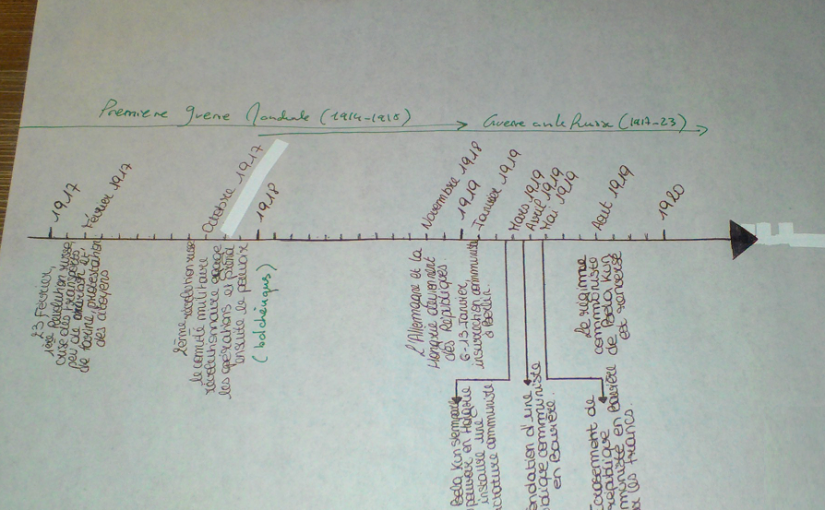 Première guerre Mondiale (1914-1918)
Guerre civile Russie (1917-23)
1917
Février 1917
Octobre 1917
1918
Novembre 1918
1919
Janvier 1919
Mars 1919
Avril 1919
Mai 1919
Aout 1919
1920
23 Février,
1ère Révolution russe
crise des transports
peu de
de farine, protestation
des citoyens
2ème révolution russe
le comité militaire
révolutionnaire engage
les opérations et prend
ensuite le pouvoir
(bolcheviques)
L'Allemagne et la
Hongrie deviennent
des Républiques
6-13 Janvier,
insurrection communiste
à Berlin.
Bela Kun s'empare
pouvoir en Hongrie
instaure une
ctature communiste
ondation d'une
blique communiste
en Bavière.
crasement de
république
muniste en Bavière
les Francs.
Le régime
communiste
de Bela Kun
est renversé